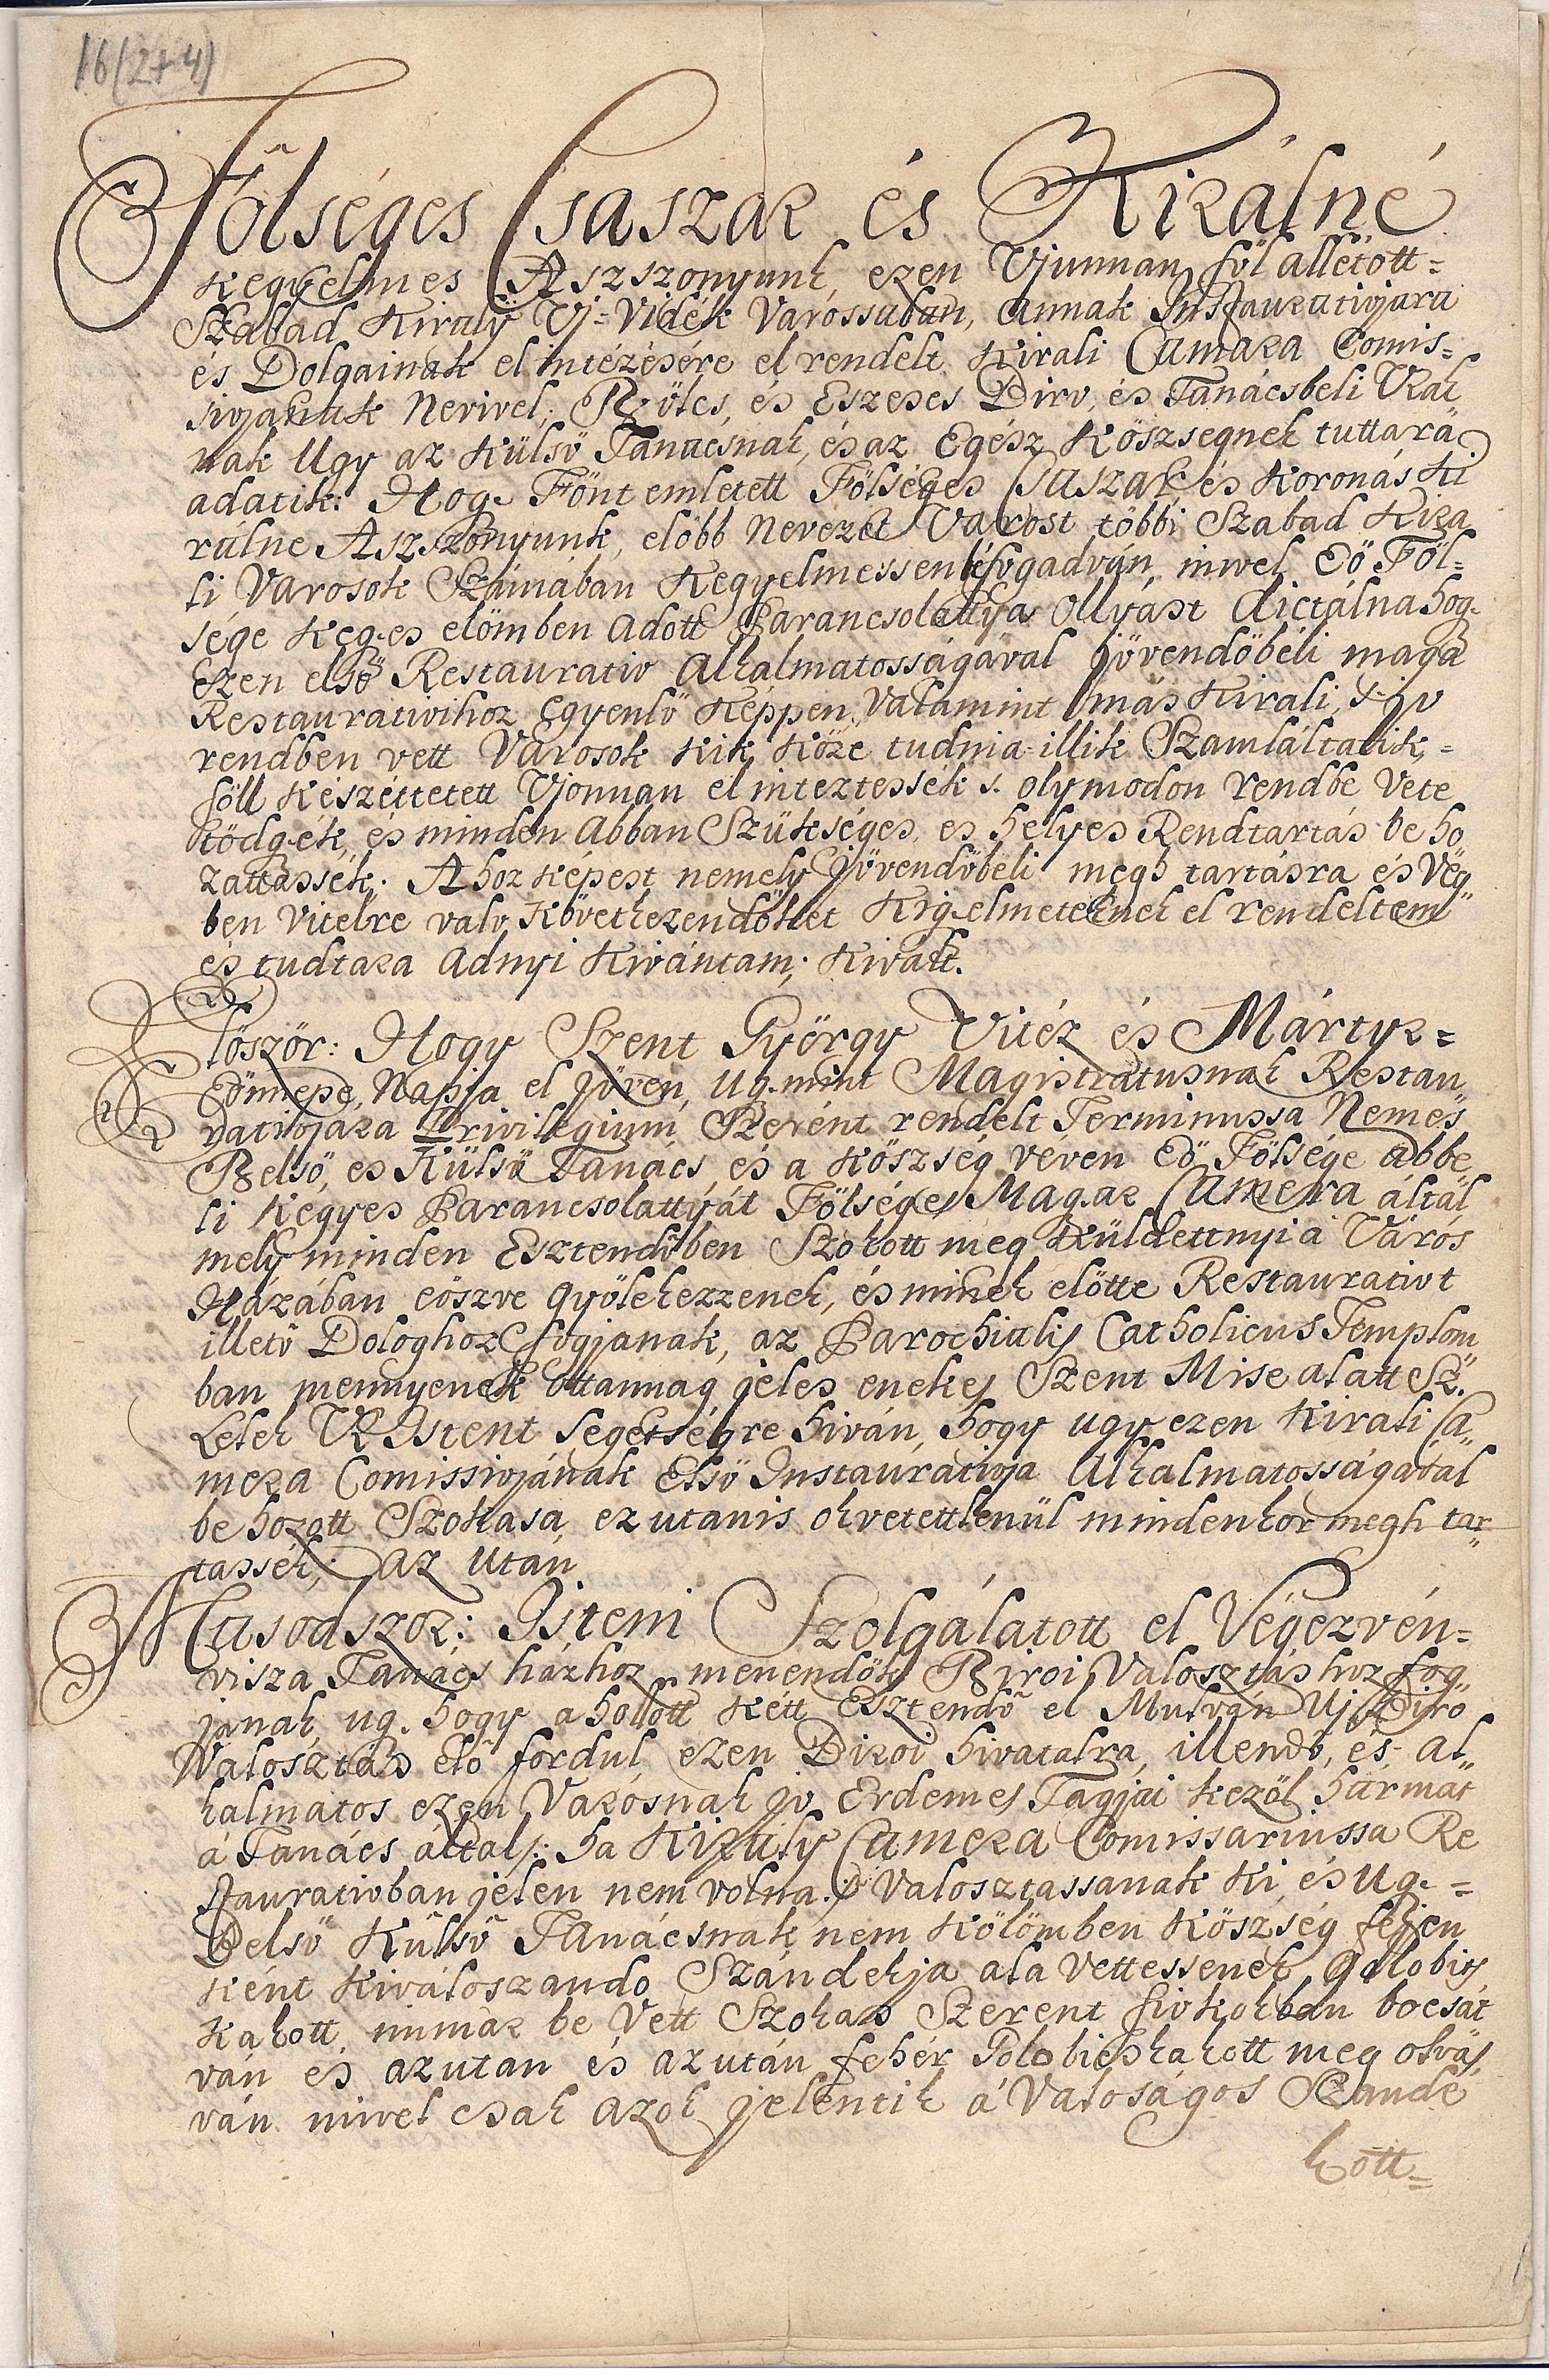 16 (2+4)
Fölséges Csaszar és Kirälné
Kegyelmes Aszszonyunk, ezen Vjunnan föl älletott=
Szabad Kiraly Vj=Vidék Várossaban, annak Instaurativjara
és Dolgainak el intézésére el rendelt Kirali Camara Comis=
sivjanak Nevivel; Bölcs, és Eszeses Birv, és Tanácsbeli Vrak
nak Ugy az Külsö Tanacsnak, és az Egész Köszsegnek tuttara
adatik: Hog. Fönt emletett Fölséges Csaszar és Koronás Ki
rälne Aszszonyunk, elöbb Nevezet Varost többi Szabad Kira
li Varosok Számában Kegyelmessen béfogadván, mivel Eö Föl=
sége Keg.es elömben adott Parancsolattya Ollyást dictálna hog.
Ezen elsö Restaurativ Alkalmatosságával jövendöbéli maga
Restaurativihoz Egyenlö Képpen, Valamint más Kirali, s jv
rendben vett Városok Kik Köze tudnia illik Szamláltatik,=
föll Készéttetett Vjonnan el inteztessék s. oly modon rendbe Vete
tödgyék, és minden Abban Szükséges, es helyes Rendtartás be ho
zattassék; Ahoz képest nemely jövendöbeli megh tartásra és Vég
ben Vitelre valv Következendöket Kigyelmeteknek el rendeltem
és tudtara Adnyi Kivántam; Kivált.
Elöször: Hogy Szent György Vitéz és Mártyr=
Eönnepe, Napja el jöven, ug.mint Magistratusnak Restau
rativjara Privilegium Szerént rendelt Terminussa Nemes
Belsö, es Külsö Tanács, és a Köszség vévén Eö Fölsége abbe
li Kegyes Parancsolattyát Fölséges Mag.ar Camera által
mely minden Esztendöben Szokott meg Küldettnyi a Város
Házában eöszve Gyölekezzenek, és minek elötte Restaurativt
illetö Dologhoz fogjanak, az Parochialis Catholicus Templom
ban mennyenek Ottannag jeles enekes Szent Mise alatt Sz.
Lelek VR Istent segetségre hiván, hogy ugy ezen Kirali Ca
mera Comissivjának Elsö Instaurativja Alkalmatosságával
be hozott Szokasa, ez utanis okvetettlenül mindenkor megh tar
tassék; az után
Masodszor: Isteni Szolgálatott el Végezvén=
visza Tanács házhoz menendök Biroi Valosztáshoz fog
janak ug. hogy a holott Kétt Esztendö el Mulván Uj Birö
Valosztás elö fordul, ezen Biroi hivatalra, illendö, és al
kalmatos ezen Varosnak jv Erdemes Tagjai kezöl hármat
á Tanács által /: ha Kiraly Camera Comissariussa Re
staurativban jelen nem volna :/ Valosztassanak Ki és Ug.=
Belsö Külsö Tanácsnak nem Kölömben Köszség fejen
Ként Kiváloszando Szándekja ala Vettessenek, Golobis
Kakott, immar be Vett Szokas Szerent fivkokban bocsát
ván es azutan és azután fehér Golobieskakott meg olvas
ván mivel csak azok jelentik á Valoságos Szandé
kott=